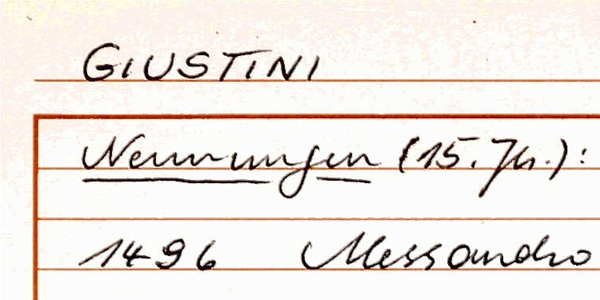 GIUSTINI
Nennungen (15. Jh.):
1496 Alessandro